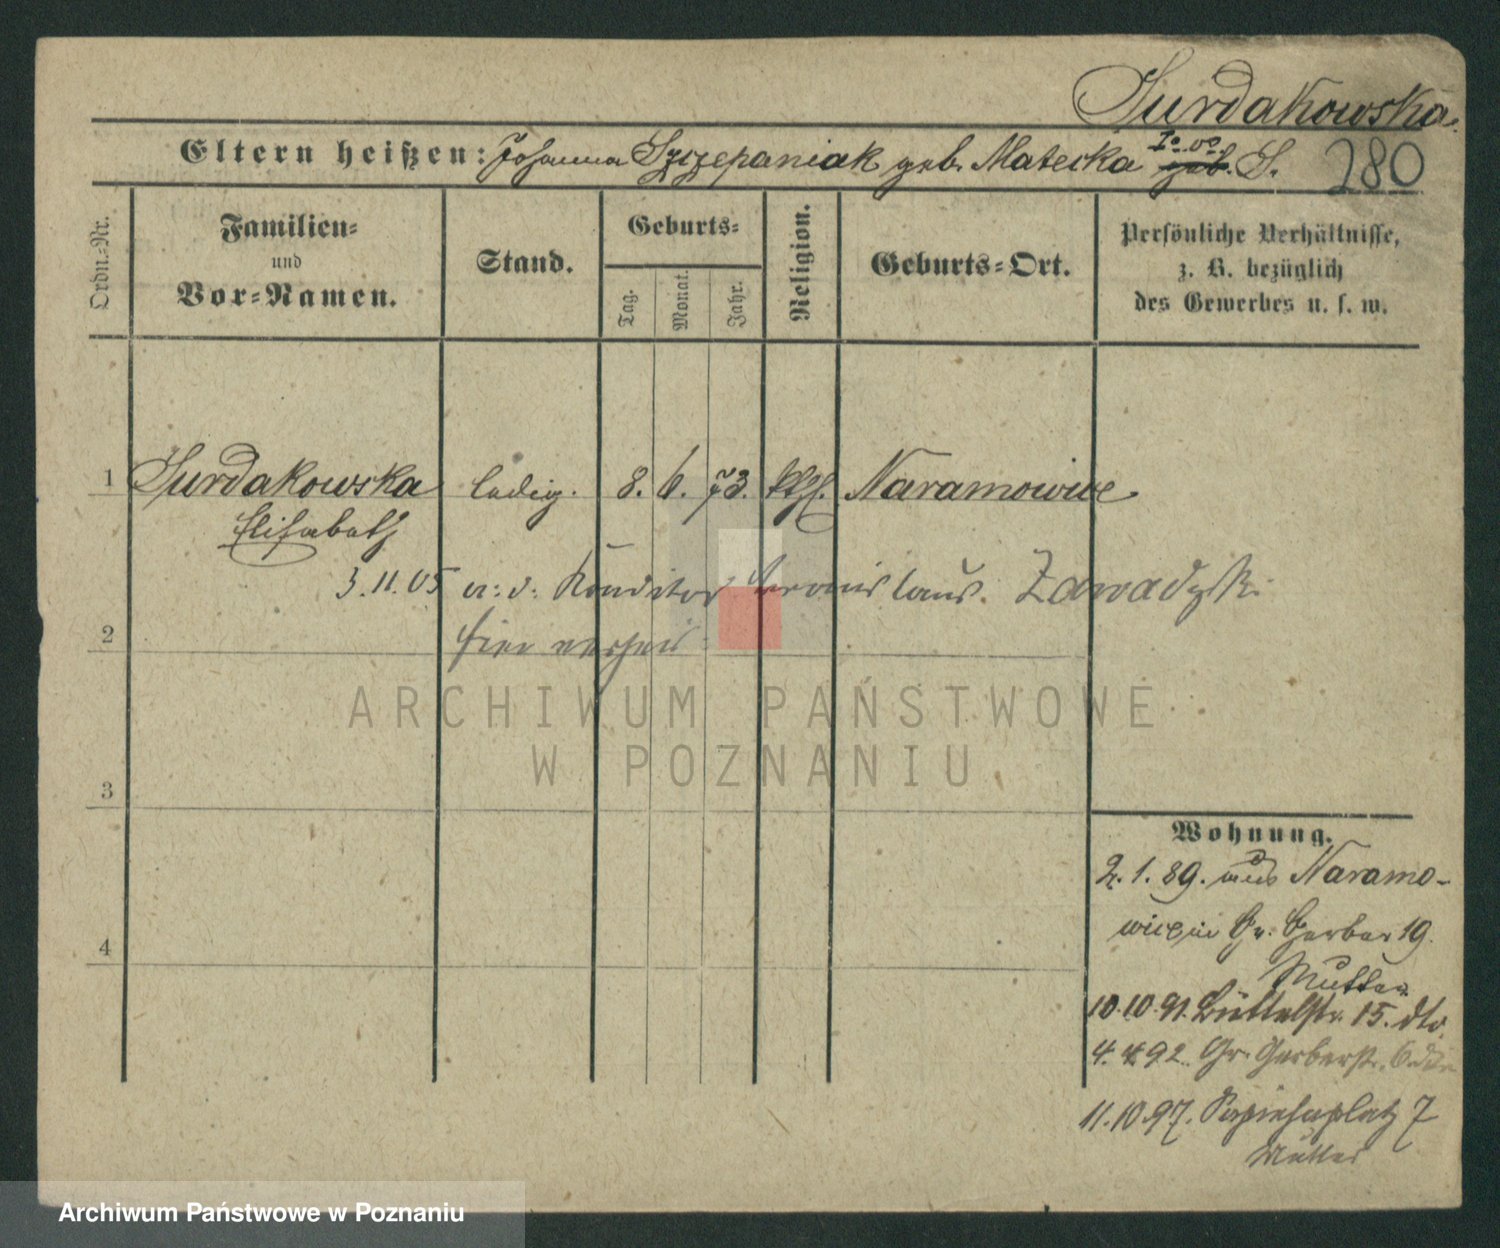 Surdakowska.
Eltern heißen: Johanna Szczepaniak geb. Matecka Io vo geb. S. 280
Ordn.-Nr.
Familien-
und
Vor-Namen.
Stand.
Geburts-
Tag.
Monat.
Jahr.
Religion.
Geburts-Ort.
Persönliche Verhältnisse,
z. B. bezüglich
des Gewerbes u. s. w.
1 Surdakowska ledig. 8. 6. 73. kthl. Naramowice
Elisabeth
3.11.05 a: d: Konditor Bronislaus Zawadzki
2 hier verheir.
ARCHIWUM PAŃSTWOWE
W POZNANIU
3
Wohnung.
2. 1. 89. aus Naramo-
wice in Gr. Gerber 19.
4
Mutter
10.10.91. Büttelstr. 15. dto.
4. 4. 92. Gr. Gerberstr. 6. dto
11.10.97. Sapiehaplatz 7
Mutter
Archiwum Państwowe w Poznaniu